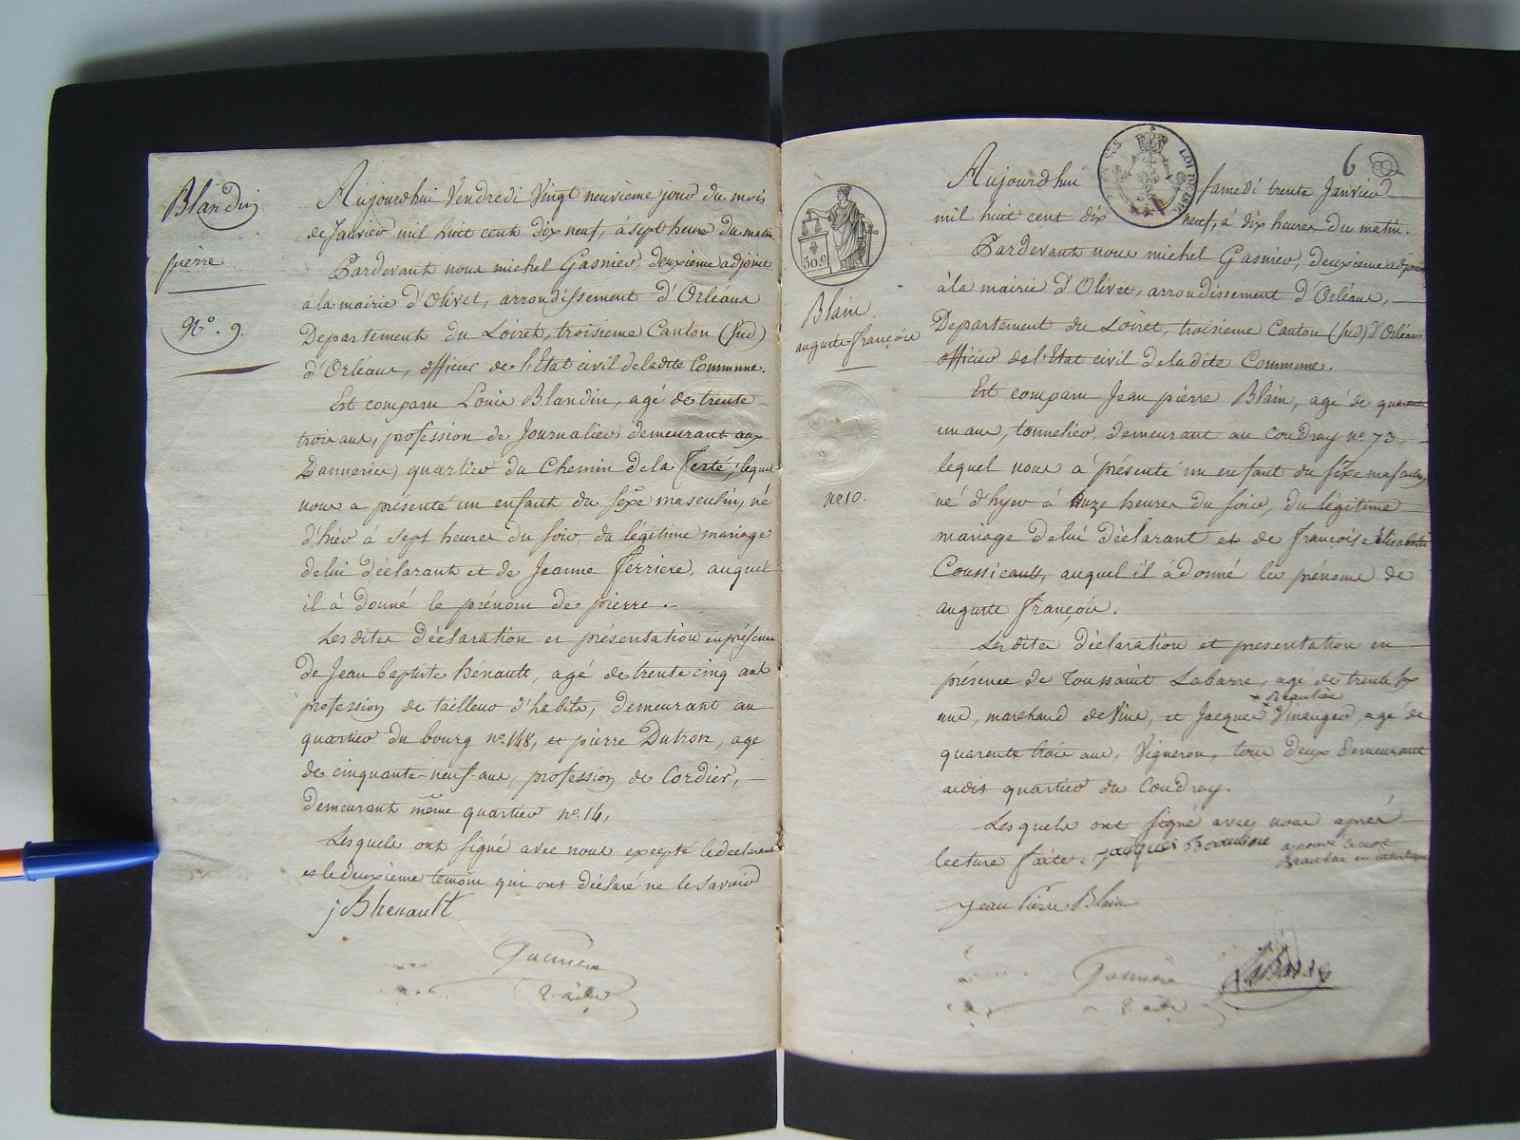 Blandin
pierre
N.º 9.
Aujourdhui Vendredi Vingt neuvieme jour du mois
de Janvier mil huit cent dix neuf, à sept heures du matin
Pardevant nous michel Gasnier deuxieme adjoint
à la mairie d'Olivet, arrondissement d'Orléans
Departement du Loiret, troisieme Canton (Sud)
d'Orléans, officier de l'Etat civil de ladite Commune.
Est comparu Louis Blandin, agé de trente
trois ans, profession de Journalier demeurant aux
quartier du Chemin de la Ferté, lequel
nous a présenté un enfant du sexe masculin, né
d'hier à sept heures du soir, du légitime mariage
de lui déclarant et de Jeanne Ferriere, auquel
il à donné le prénom de pierre.
Lesdites déclaration et présentation en présence
de Jean baptiste hénault, agé de trente cinq ans
profession de tailleur d'habits, demeurant au
quartier du bourg nº 148, et pierre Dubron, age
de cinquante-neuf ans, profession de Cordier,
demeurant même quartier nº 14,
Lesquels ont signé avec nous excepté le declarant
et le deuxième temoin qui ont déclaré ne le savoir
jBhenault
Gasnier
2. adj
6
30 C
Blain
auguste-françois
nº 10.
Aujourdhui samedi trente Janvier
mil huit cent dix neuf, à dix heures du matin.
Pardevant nous michel Gasnier, deuxieme adjoint
à la mairie d'Olivet, arrondissement d'Orléans,
Departement du Loiret, troisieme Canton (Sud) d'Orléans
officier de l'Etat civil de ladite Commune.
Est comparu Jean pierre Blain, agé de quarante
un ans, tonnelier, demeurant au Coudray nº 73,
lequel nous à présenté un enfant du sexe masculin,
né d'hyer à onze heures du soir, du légitime
mariage de lui déclarant et de françoise Elisabeth
Coussicault, auquel il à donné les prénoms de
auguste françois.
Lesdites déclaration et presentation en
présence de Toussaint Labarre, age de trente
neuf, marchand de Vins, et Jacques Vinauger, agé de
quarente trois ans, Vigneron, tous deux demeurant
audit quartier du Coudray.
Lesquels ont signé avec nous après
lecture faite. jacques
Jean Pierre Blain
Gasnier
2. adj
Labarre